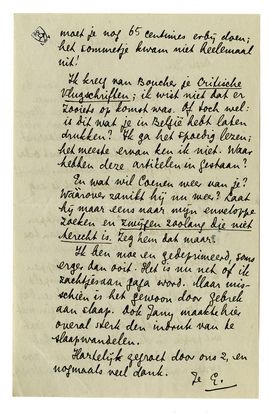 moet je nog 65 centimes erbij doen;
het sommetje kwam niet heelemaal
uit!
Ik kreeg van Boucher je Critische
Vlugschriften; ik wist niet dat er
zooiets op komst was. Of toch wel:
is dit wat je in België hebt laten
drukken? Ik ga het spoedig lezen;
het meeste ervan ken ik niet. Waar
hebben deze artikelen in gestaan?
En wat wil Coenen meer van je?
Waarover zanikt hij nu weer? Laat
hij maar eens naar mijn enveloppe
zoeken en zwijgen zoolang die niet
terecht is. Zeg hem dat maar.
Ik ben moe en gedeprimeerd, soms
erger dan ooit. Het is nu net of ik
zachtjesaan gaga word. Maar mis-
schien is het gewoon door gebrek
aan slaap. Ook Jany maakte hier
overal sterk den indruk van te
slaapwandelen.
Hartelijk gegroet door ons 2, en
nogmaals veel dank.
Je E.